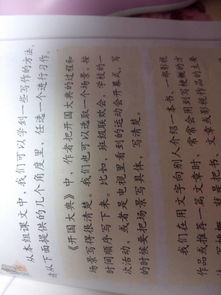 从本组课文中，我们可以学到一些写作的方法。
请从下面提供的几个角度里，任选一个进行习作。
《开国大典》中，作者把开国大典的过程和
场景写得很清楚，我们也可以选取一个场景，按
时间顺序写下来。比如，班级联欢会、学校的一
次活动，或者是电视里看到的运动会开幕式。写
的时候要把场景写具体，写清楚。
我们在用文字向别人介绍一本书、一部影视
作品或推荐一篇文章时，常常会用到写梗概的方
文章或影视作品的主要